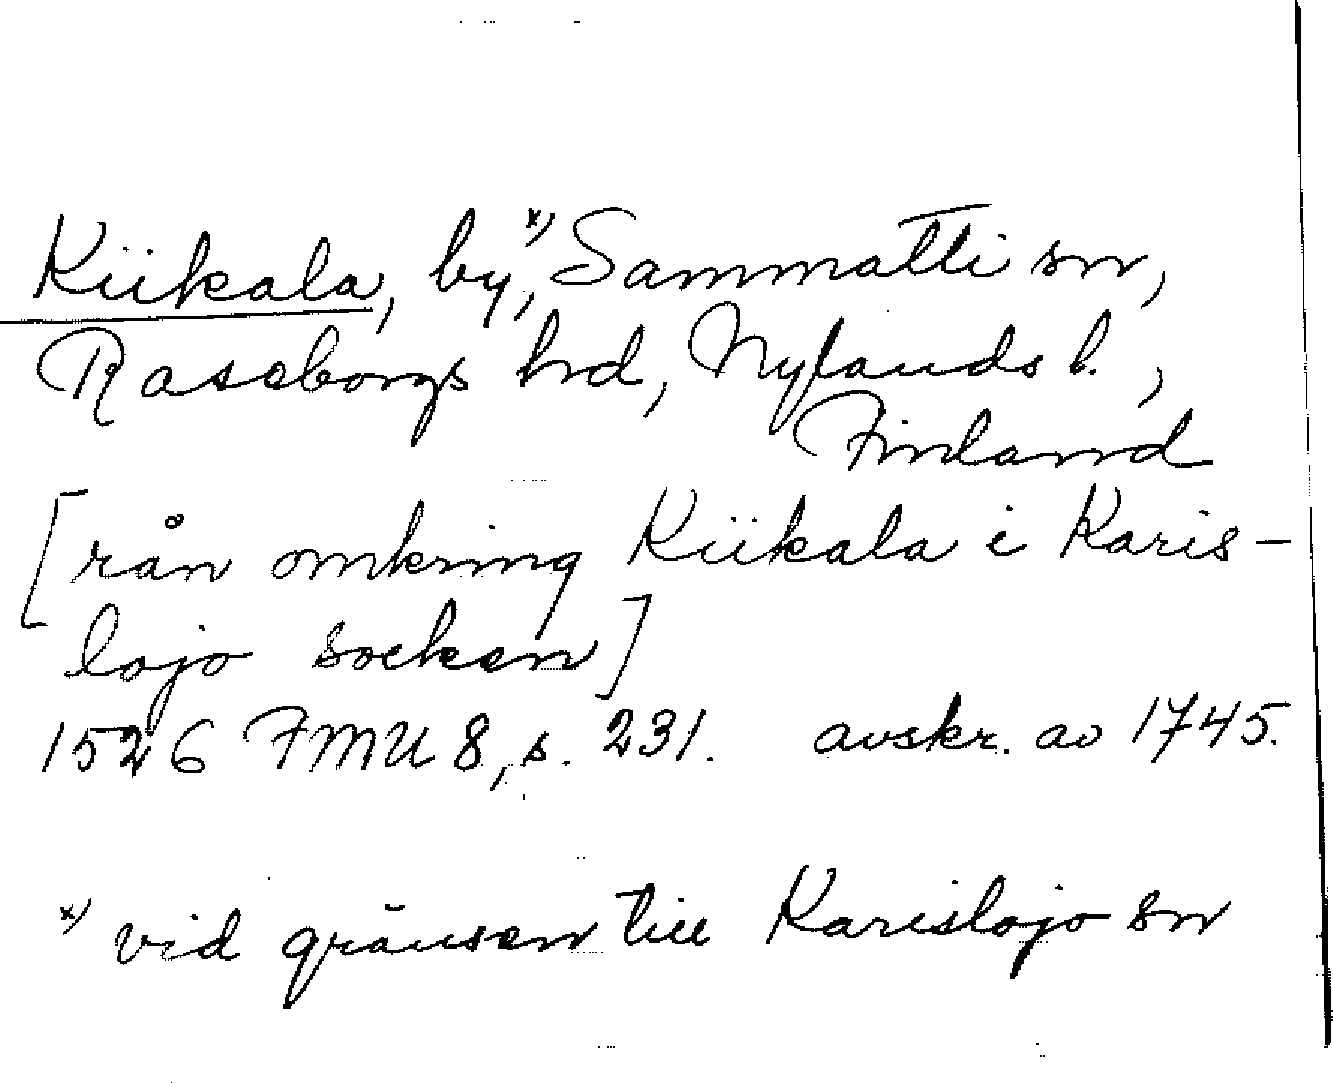 Kiikala, by,ˣ⁾ Sammatti sn,
Raseborgs hrd, Nylands l.,
Finland
[rån omkring Kiikala i Karis-
lojo socken]
1526 FMU 8, s. 231. avskr. av 1745.
ˣ⁾ vid gränsen till Karislojo sn